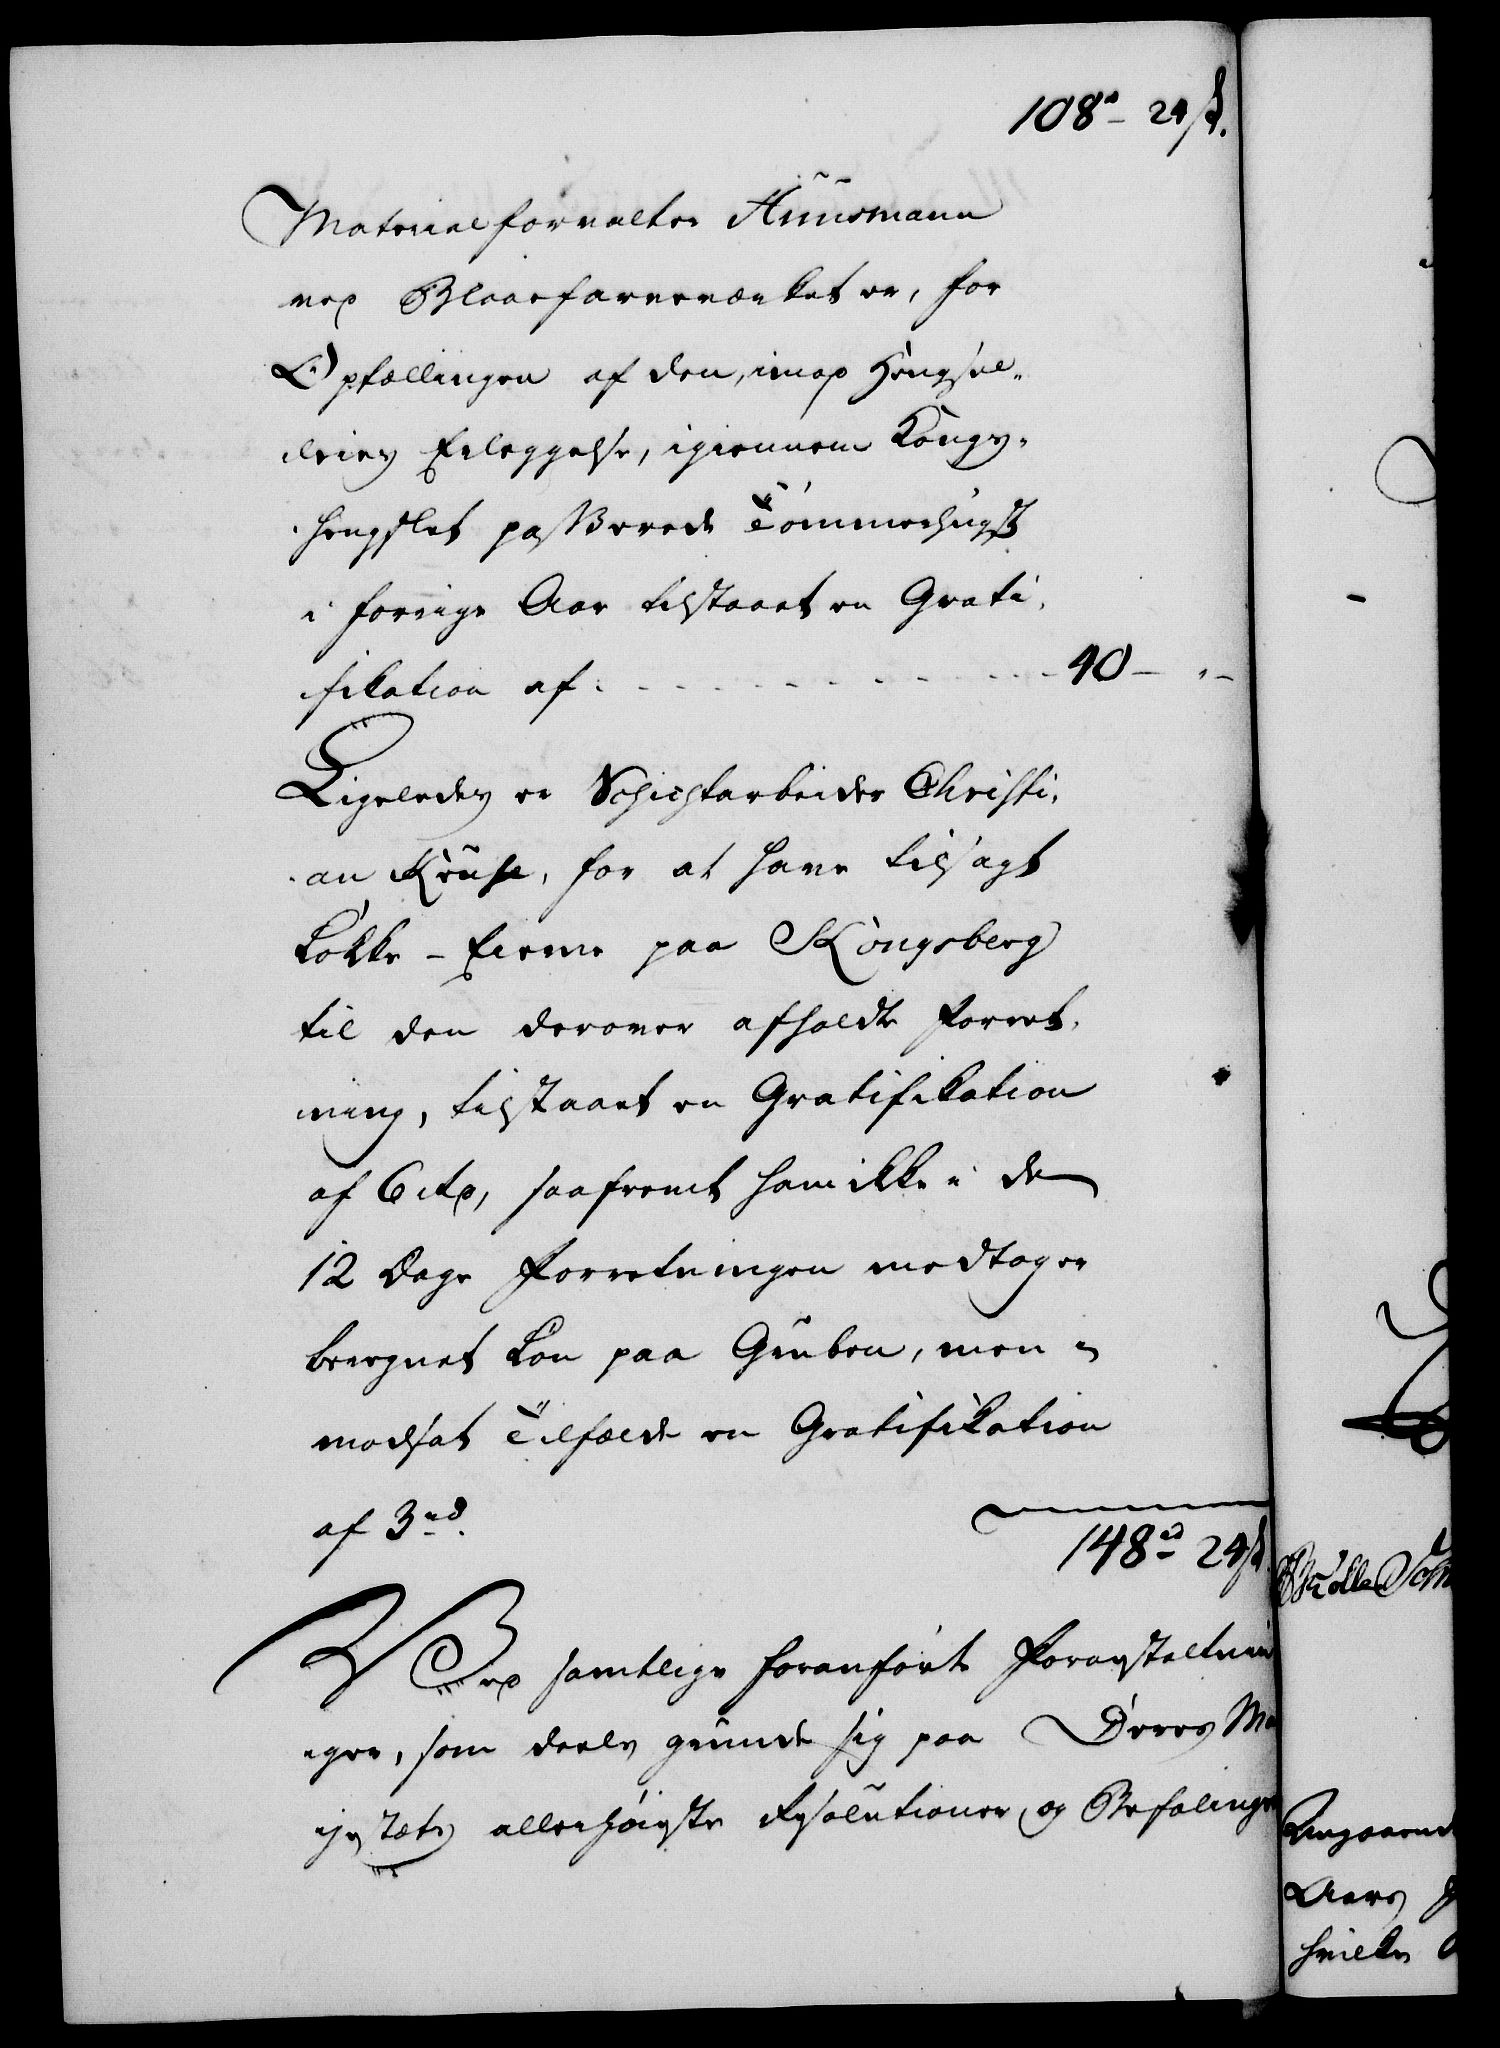 108 rd - 24 ß.
Materialforvalter Huusmann
ved Blaaefarveværket er, for
Optællingen af den, imod
Erleggelse, igiennem Kongs-
passerede Tømmerhugst
i forrige Aar tilstaaet en Grati-
fikation af . . . . . . . . . . . . . 40 - " -
Ligeledes er Schichtarbeider Christi-
an Kruse, for at have tilsagt
Løkke-Eierne paa Kongsberg
til den derover afholdte Forret-
ning, tilstaaet en Gratifikation
af 6 rd, saafremt han ikke i de
12 Dage Forretningen medtager
beregnet Løn paa Gruben, men i
modsat Tilfælde en Gratifikation
af 3 rd.
148 rd 24 ß.
Ved samtlige foranførte Foranstaltnin
ger, som deels grunde sig paa Deres Ma
jestæts allerhøieste Resolutioner og Befalinger
Angaaende
Aars
hvilke